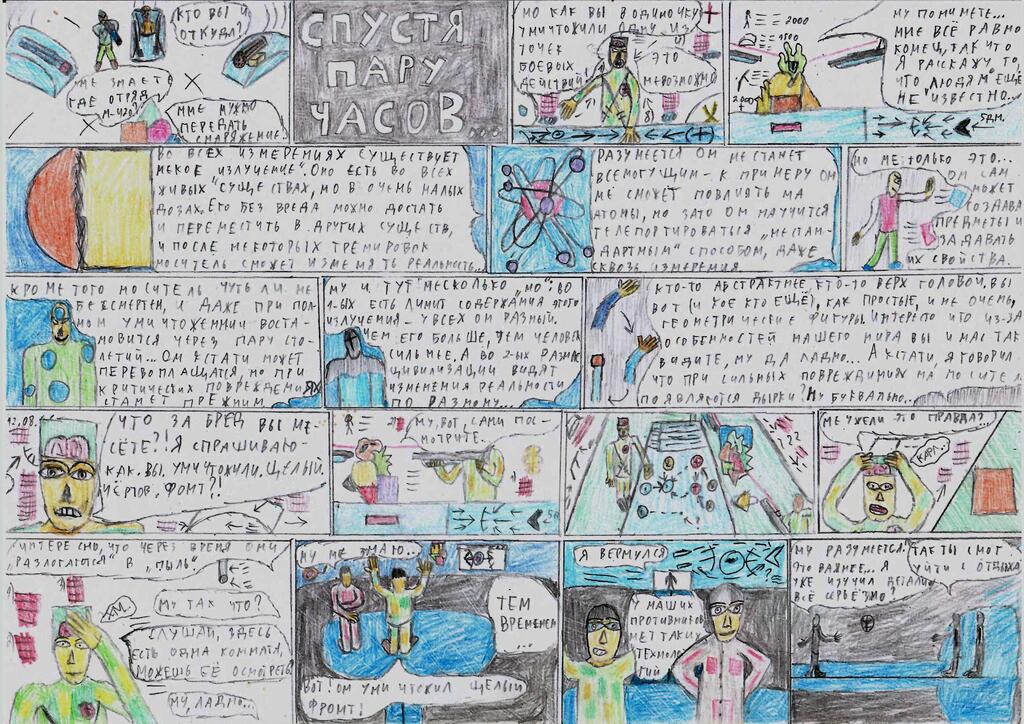 КТО ВЫ И
ОТКУДА?
НЕ ЗНАЕТЕ
ГДЕ ОТРЯД
М-420?
МНЕ НУЖНО
ПЕРЕДАТЬ
СНАРЯЖЕНИЕ.
СПУСТЯ
ПАРУ
ЧАСОВ...
НО КАК ВЫ В ОДИНОЧКУ
УНИЧТОЖИЛИ ОДНУ ИЗ
ТОЧЕК
БОЕВЫХ
ДЕЙСТВИЙ!
ЭТО
НЕВОЗМОЖНО
НУ ПОЙМИТЕ...
МНЕ ВСЁ РАВНО
КОНЕЦ, ТАК ЧТО
Я РАССКАЖУ ТО,
ЧТО ЛЮДЯМ ЕЩЁ
НЕ ИЗВЕСТНО...
ВО ВСЕХ ИЗМЕРЕНИЯХ СУЩЕСТВУЕТ
НЕКОЕ "ИЗЛУЧЕНИЕ". ОНО ЕСТЬ ВО ВСЕХ
ЖИВЫХ СУЩЕСТВАХ, НО В ОЧЕНЬ МАЛЫХ
ДОЗАХ. ЕГО БЕЗ ВРЕДА МОЖНО ДОСТАТЬ
И ПЕРЕМЕСТИТЬ В ДРУГИХ СУЩЕСТВ,
И ПОСЛЕ НЕКОТОРЫХ ТРЕНИРОВОК
НОСИТЕЛЬ СМОЖЕТ ИЗМЕНЯТЬ РЕАЛЬНОСТЬ...
РАЗУМЕЕТСЯ ОН НЕ СТАНЕТ
ВСЕМОГУЩИМ - К ПРИМЕРУ ОН
НЕ СМОЖЕТ ПОВЛИЯТЬ НА
АТОМЫ, НО ЗАТО ОН НАУЧИТСЯ
ТЕЛЕПОРТИРОВАТЬСЯ "НЕСТАН-
ДАРТНЫМ" СПОСОБОМ, ДАЖЕ
СКВОЗЬ ИЗМЕРЕНИЯ.
НО НЕ ТОЛЬКО ЭТО...
ОН САМ
МОЖЕТ
СОЗДАВАТЬ
ПРЕДМЕТЫ И
ЗАДАВАТЬ
ИХ СВОЙСТВА.
КРОМЕ ТОГО НОСИТЕЛЬ ЧУТЬ ЛИ НЕ
БЕССМЕРТЕН, И ДАЖЕ ПРИ ПОЛ-
НОМ УНИЧТОЖЕНИИ ВОСТА-
НОВИТСЯ ЧЕРЕЗ ПАРУ СТО-
ЛЕТИЙ... ОН КСТАТИ МОЖЕТ
ПЕРЕВОПЛАЩАТСЯ, НО ПРИ
КРИТИЧЕСКИХ ПОВРЕЖДЕНИЯХ
СТАНЕТ ПРЕЖНИМ.
НУ И ТУТ НЕСКОЛЬКО "НО": ВО
1-ЫХ ЕСТЬ ЛИМИТ СОДЕРЖАНИЯ ЭТОГО
ИЗЛУЧЕНИЯ - У ВСЕХ ОН РАЗНЫЙ.
ЧЕМ ЕГО БОЛЬШЕ, ТЕМ ЧЕЛОВЕК
СИЛЬНЕЕ. А ВО 2-ЫХ РАЗНЫЕ
ЦИВИЛИЗАЦИИ ВИДЯТ
ИЗМЕНЕНИЯ РЕАЛЬНОСТИ
ПО РАЗНОМУ...
КТО-ТО АБСТРАКТНЕЕ, КТО-ТО ВЕРХ ГОЛОВОЙ, ВЫ
ВОТ (И КОЕ КТО ЕЩЁ), КАК ПРОСТЫЕ, И НЕ ОЧЕНЬ,
ГЕОМЕТРИЧЕСКИЕ ФИГУРЫ. ИНТЕРЕСНО ЧТО ИЗ-ЗА
ОСОБЕННОСТЕЙ НАШЕГО МИРА ВЫ И НАС ТАК
ВИДИТЕ, НУ ДА ЛАДНО... А КСТАТИ, Я ГОВОРИЛ
ЧТО ПРИ СИЛЬНЫХ ПОВРЕЖДЕНИЯХ НА НОСИТЕЛЕ
ПОЯВЛЯЮТСЯ ДЫРКИ? НУ БУКВАЛЬНО...
ЧТО ЗА БРЕД ВЫ НЕ-
СЁТЕ?! Я СПРАШИВАЮ -
КАК. ВЫ. УНИЧТОЖИЛИ. ЦЕЛЫЙ.
ЧЁРТОВ. ФРОНТ?!
НУ, ВОТ, САМИ ПОС-
МОТРИТЕ.
НЕУЖЕЛИ ЭТО ПРАВДА?..
ИНТЕРЕСНО, ЧТО ЧЕРЕЗ ВРЕМЯ ОНИ
"РАЗЛОГАЮТСЯ" В "ПЫЛЬ"
ХМ.
НУ ТАК ЧТО?
СЛУШАЙ, ЗДЕСЬ
ЕСТЬ ОДНА КОМНАТА,
МОЖЕШЬ ЕЁ ОСМОТРЕТЬ.
НУ, ЛАДНО...
НУ НЕ ЗНАЮ...
ТЕМ
ВРЕМЕНЕМ
...
ВОТ! ОН УНИЧТОЖИЛ ЦЕЛЫЙ
ФРОНТ!
Я ВЕРНУЛСЯ
У НАШИХ
ПРОТИВНИКОВ
НЕТ ТАКИХ
ТЕХНОЛО-
ГИЙ
НУ РАЗУМЕЕТСЯ!
ЭТО ВАЖНЕЕ... Я
УЖЕ ИЗУЧИЛ ДЕТАЛИ
ВСЁ СЕРЬЁЗНО?
ТАК ТЫ СМОГ
УЙТИ С ОТДЫХА